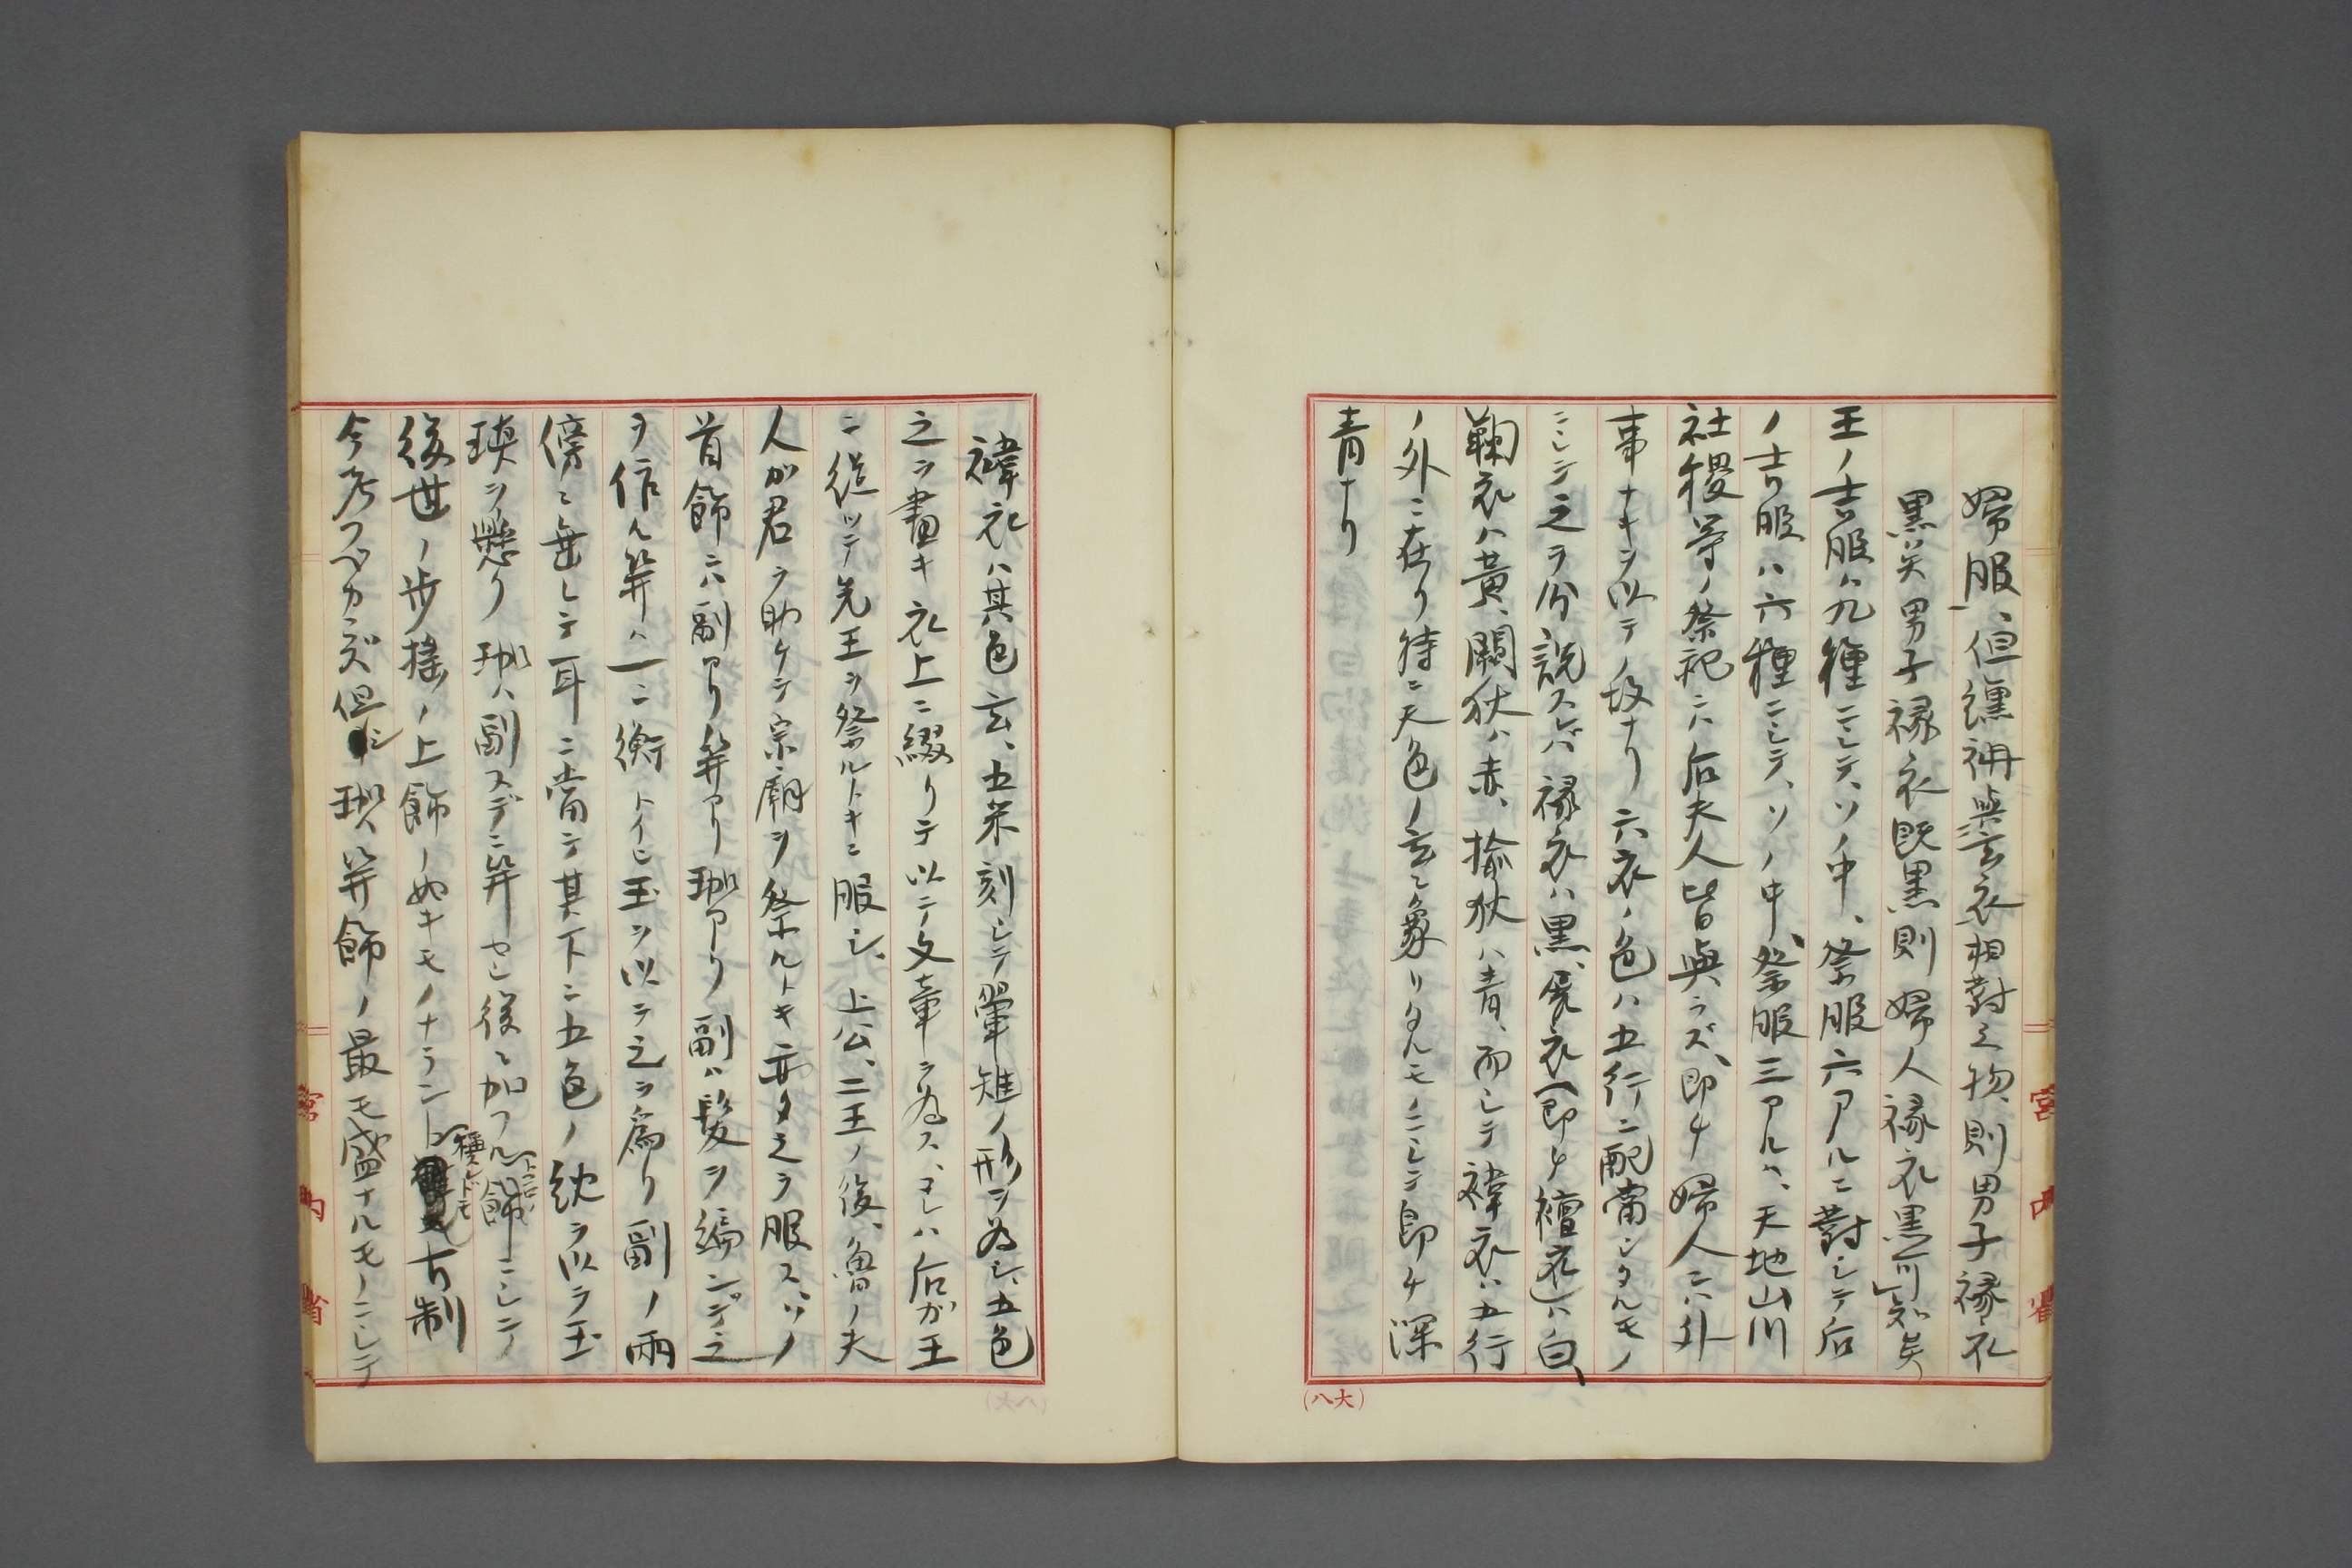 婦服、但纁衻與玄衣相對之物、則男子褖衣
黒矣男子褖衣既黒則婦人褖衣黒可知矣
王ノ吉服ハ九種ニシテ、ソノ中、祭服六アルニ對シテ后
ノ吉服ハ六種ニシテ、ソノ中、祭服三アルハ、天地山川
社稷等ノ祭祀ニハ后夫人皆與ラズ、即チ婦人ニハ外
事ナキヲ以テノ故ナリ六衣ノ色ハ五行ニ配當シタルモノ
ニシテ之ヲ分説スレバ褖衣ハ黒、展衣(即チ襢衣)ハ白、
鞠衣ハ黄、闕狄ハ赤、揄狄ハ青、而シテ褘衣ハ五行
ノ外ニ在リ特ニ天色ノ玄ニ象リタルモノニシテ即チ深
青ナリ
褘衣ハ其色玄、五采刻シテ翬雉ノ形ヲ為シ、五色
之ヲ畫キ衣上ニ綴リテ以テ文章ヲ為ス、コレハ后ガ王
ニ從ッテ先王ヲ祭ルトキニ服シ、上公、二王ノ後、魯ノ夫
人ガ君ヲ助ケテ宗廟ヲ祭ルトキ亦タ之ヲ服ス、ソノ
首飾ニハ副アリ笄アリ珈アリ副ハ髪ヲ編ンデ之
ヲ作ル笄ハ一ニ衡トイヒ玉ヲ以テ之ヲ為リ副ノ兩
傍ニ垂レテ耳ニ當テ其下ニ五色ノ紞ヲ以テ玉
瑱ヲ懸ク珈ハ副スデニ笄セシ後ニ加フル(トコロノ)飾ニシテ
後世ノ歩搖ノ上飾ノ如キモノナラント雖ドモ古制
今考フベカラズ但シ珈ハ笄飾ノ最モ盛ナルモノニシテ
宮内省
宮内省
(八大)